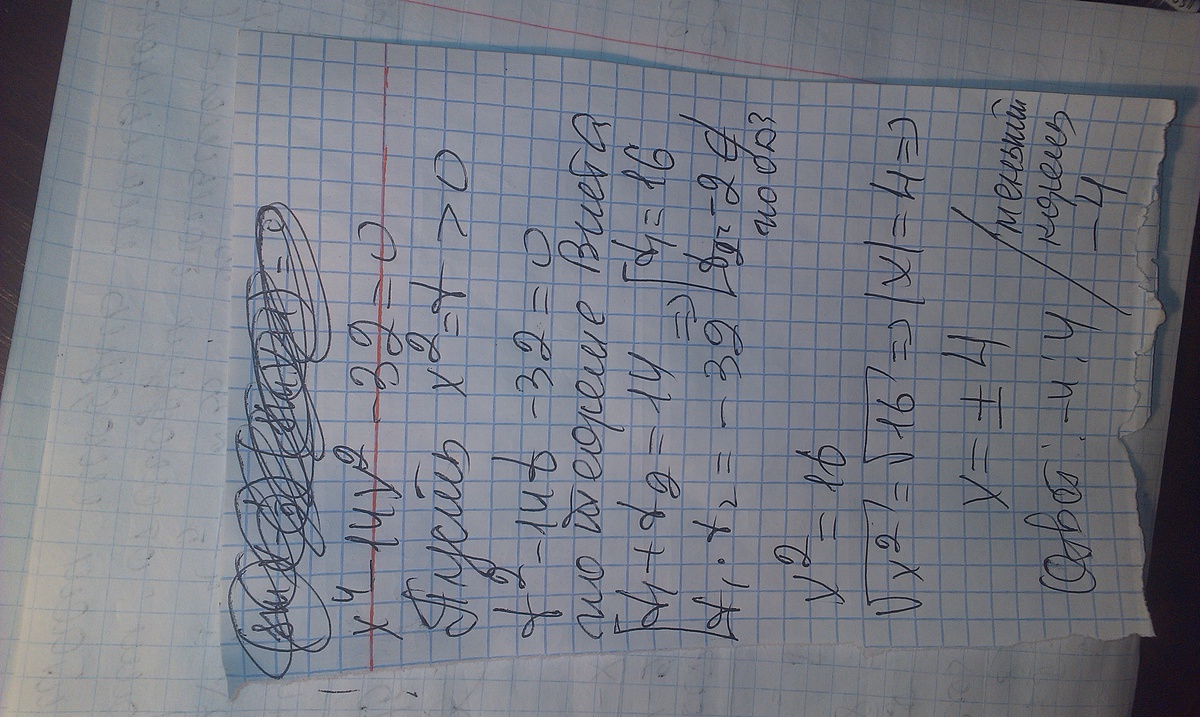 x⁴ - 14x² - 32 = 0
Пусть x² = t > 0
t² - 14t - 32 = 0
по теореме Виета
[t₁ + t₂ = 14 => [t₁ = 16
[t₁ · t₂ = -32 [t₂ = -2 ∉
по ОДЗ
x² = 16
√x² = √16 => |x| = 4 =>
x = ± 4
Ответ: -4; 4 / меньший
корень
-4